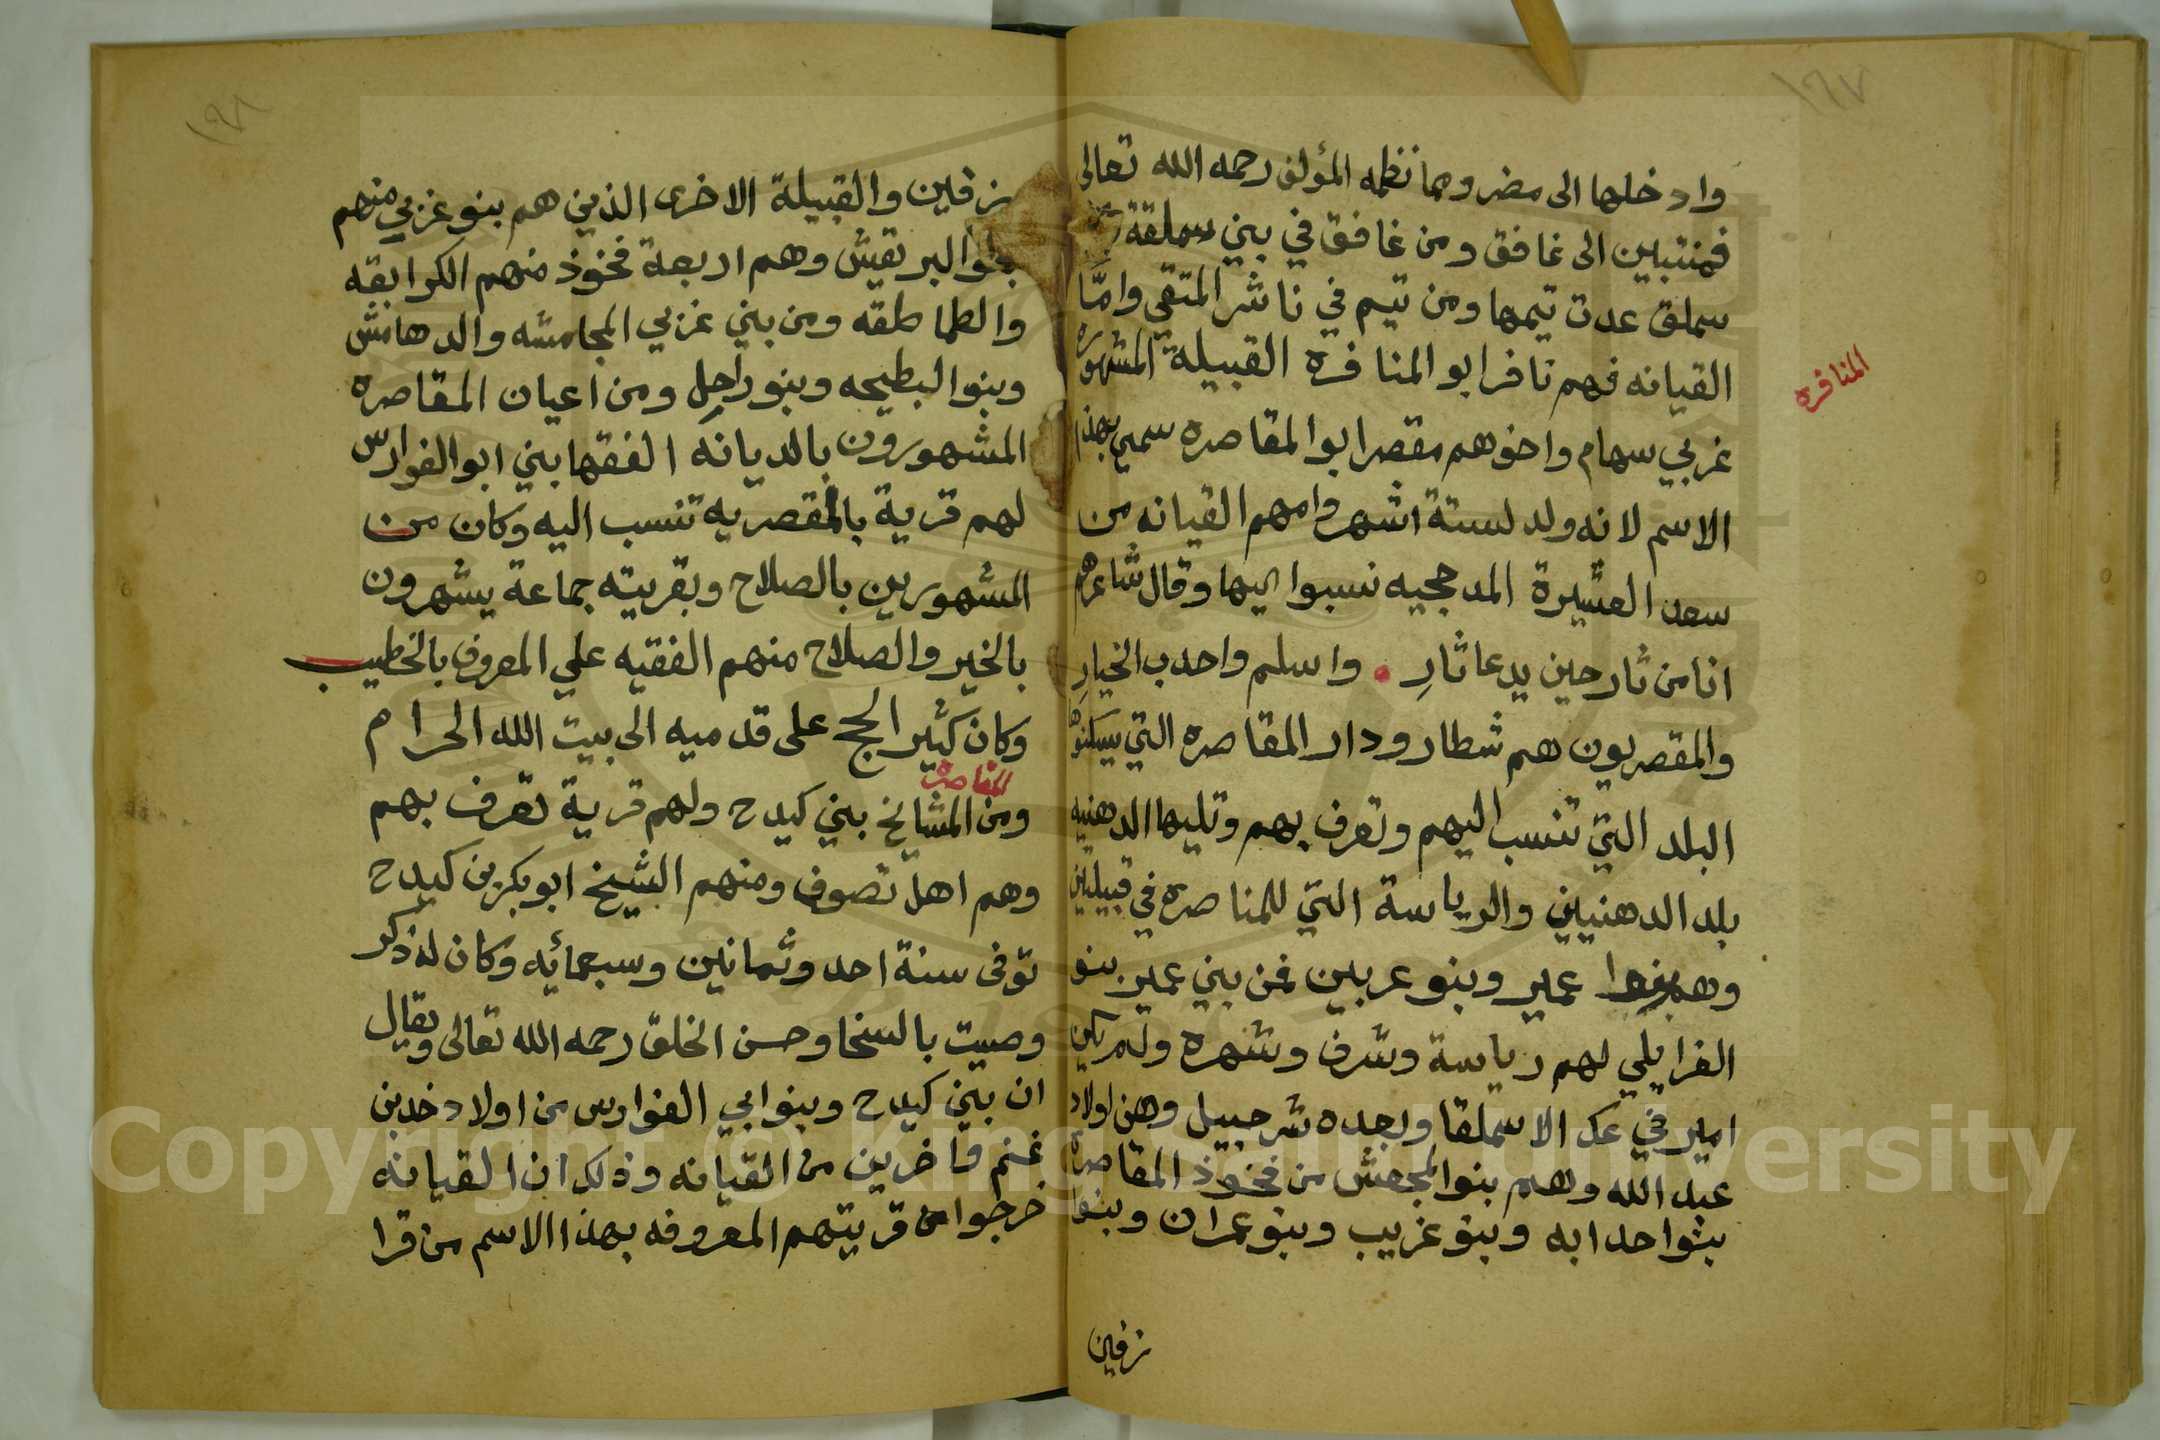 ١٩٧
وادخلها الى مضر ومما نظمه المؤلف رحمه الله تعالى
فمنتبين الى غافق ومن غافق في بني سملقة
سملق عدت تيمها ومن تيم في ناشر المتقي وامّا
القيانه فهم نافر ابو المنافره القبيلة المشهوره
المنافره
غربي سهام واخوهم مقصر ابو المقاصره سمي بهذا
الاسم لانه ولد لستة اشهر وامهم القيانه من
سعد العشيرة المدحجيه نسبوا اليها وقال شاعرهم
انا من ثار حين يدعا ثارِ . واسلم واحدب الخيارِ
والمقصريون هم شطار ودار المقاصره التي يسكنوها
البلد التي تنسب اليهم وتعرف بهم وتليها الدهنيه
بلد الدهنيين والرياسة التي للمناصره في قبيلتين
وهم بنوا عمير وبنو عربين فمن بني عمير بنو
الغرايلي لهم رياسة وشرف وشهره ولم يكن
امير في عك الا سملقا وبجده شرحبيل وهن اولاد
عبد الله وهم بنوا المجعش من فخوذ المقاصرة
بنوا حدابه وبنو غريب وبنو عمران وبنوا
زفين
١٩٨
زفين والقبيلة الاخرى الذين هم بنو غزبي منهم
بنوا البرتقش وهم اربعة فخوذ منهم الكرابقه
والطماطقه ومن بني غزبي المجامشه والدهامش
وبنو البطيحه وبنو راجل ومن اعيان المقاصره
المشهورون بالديانه الفقها بني ابو الفوارس
لهم قرية بالمقصريه تنسب اليه وكان من
المشهورين بالصلاح وبقريته جماعة يشهرون
بالخير والصلاح منهم الفقيه علي المعروف بالخطيب
وكان كثير الحج على قدميه الى بيت الله الحرام
المقاصره
ومن المشايخ بني كيدح ولهم قرية تعرف بهم
وهم اهل تصوف ومنهم الشيخ ابو بكر بن كيدح
توفى سنة احد وثمانين وسبعمائه وكان له ذكر
وصيت بالسخا وحسن الخلق رحمه الله تعالى ويقال
ان بني كيدح وبنو ابي الفوارس من اولاد خد بن
غنم فاخرين من القيانه وذلك ان القيانه
خرجوا من قريتهم المعروفه بهذا الاسم من قرا
Copyright © King Saud University